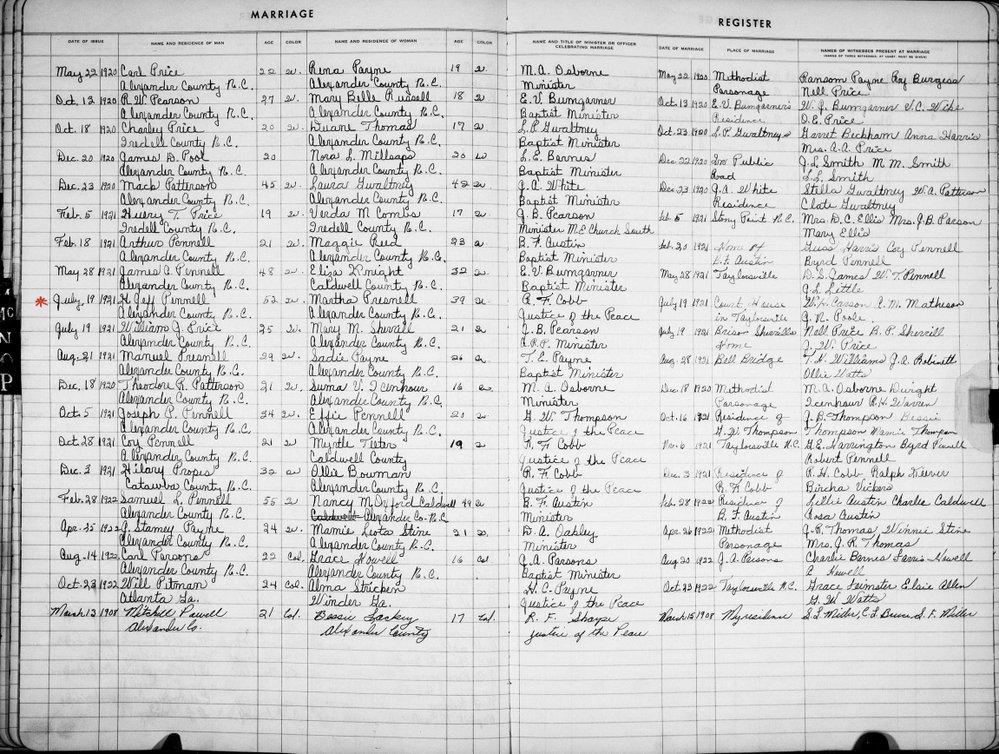 MARRIAGE
REGISTER
DATE OF ISSUE NAME AND RESIDENCE OF MAN AGE COLOR NAME AND RESIDENCE OF WOMAN AGE COLOR NAME AND TITLE OF MINISTER OR OFFICER CELEBRATING MARRIAGE DATE OF MARRIAGE PLACE OF MARRIAGE NAMES OF WITNESSES PRESENT AT MARRIAGE
May 22 1920 Carl Price 22 w. Rena Payne 19 w M.A. Osborne May 22 1920 Methodist Ransom Payne Ray Burgess
Alexander County N.C. Alexander County N.C. Minister Parsonage Nell Price
Oct. 12 1920 R.W. Pearson 27 w. Mary Belle Russell 18 w E.V. Bumgarner Oct. 13 1920 E.V. Bumgarner's W.J. Bumgarner
Alexander County N.C. Alexander County N.C. Baptist Minister Residence O.E. Price
Oct. 18 1920 Charley Price 20 w. Duane Thomas 17 w L.P. Gwaltney Oct. 23 1920 L.P. Gwaltneys Garret Beckham Anna Harris
Iredell County N.C. Alexander County N.C. Baptist Minister Mrs. A.A. Price
Dec. 20 1920 James D. Pool 20 Nora L. Millsaps 20 w L.E. Barnes Dec. 22 1920 On Public J.L. Smith M.M. Smith
Alexander County N.C. Alexander County N.C. Baptist Minister Road L.L. Smith
Dec. 23 1920 Mack Patterson 45 w. Laura Gwaltney 42 w J.A. White Dec 23 1920 J.A. White Stella Gwaltney W.A. Patterson
Alexander County N.C. Alexander County N.C. Baptist Minister Residence Clate Gwaltney
Feb. 5 1921 Henry T. Price 19 w. Verda M Combs 17 w J.B. Pearson Feb 5 1921 Stony Point N.C. Mrs. D.C. Ellis Mrs. J.B. Pearson
Iredell County N.C. Iredell County N.C. Minister M.E. Church South Mary Ellis
Feb. 18 1921 Arthur Pennell 21 w. Maggie Reed 23 w B.F. Austin Feb. 20 1921 Home of Guss Harris Coy Pennell
Alexander County N.C. Alexander County N.C. Baptist Minister B.F. Austin Byrd Pennell
May 28 1921 James A. Pennell 48 w. Eliza Knight 32 w E.V. Bumgarner May 28 1921 Taylorsville D.S. James W.T. Pennell
Alexander County N.C. Caldwell County N.C. Baptist Minister Little
* July 19 1921 H. Jeff Pennell 52 w. Martha Presnell 39 w R.F. Cobb July 19 1921 Court House W.H. Carson A.M. Matheson
Alexander County N.C. Alexander County N.C. Justice of the Peace in Taylorsville J.R. Poole
July 19 1921 William J. Price 25 w. Mary M. Sherrill 21 w J.B. Pearson July 19 1921 Sherrills Nell Price B.P. Sherrill
Alexander County N.C. Alexander County N.C. Minister Home J.W. Price
Aug. 21 1921 Manuel Presnell 29 w. Sadie Payne 26 w T.E. Payne Aug. 28 1921 Bell Bridge T.H. Williams J.A. Robinett
Alexander County N.C. Alexander County N.C. Baptist Minister Ollie Watts
Dec. 18 1920 Theodore R. Patterson 21 w. Suma V. Icenhour 16 w. M.A. Osborne Dec. 18 1920 Methodist M.A. Osborne Dwight
Alexander County N.C. Alexander County N.C. Minister Parsonage Icenhour R.H. Warren
Oct. 5 1921 Joseph P. Pennell 24 w. Effie Pennell 20 w G.W. Thompson Oct. 16 1921 Residence of J.B. Thompson Bessie
Alexander County N.C. Alexander County N.C. Justice of the Peace G.W. Thompson Thompson Mamie Thompson
Oct. 28 1921 Coy Pennell 21 w Myrtle Teeters 19 w R.F. Cobb Nov. 6 1921 Taylorsville N.C. G.E. Harrington Byrd Pennell
Alexander County N.C. Caldwell County Justice of the Peace Robert Pennell
Dec. 3 1921 Hilary Propes 32 w Allie Bowman R.F. Cobb Dec. 3 1921 Residence of P.H. Cobb Ralph Keever
Catawba County N.C. Alexander County N.C. Justice of the Peace R.F. Cobb Vickers
Feb. 28 1922 Samuel L. Pennell 55 w Nancy M Oxford Caldwell 49 w B.F. Austin Feb. 28 1922 Residence of Millie Austin Charlie Caldwell
Alexander County N.C. Caldwell Alexander Co. N.C. Minister B.F. Austin Rosa Austin
Apr. 25 1922 J. Stamey Payne 24 w. Mamie Leota Stine 21 w. D.A. Oakley Apr. 26 1922 Methodist J.R. Thomas Winnie Stine
Alexander County N.C. Alexander County N.C. Minister Parsonage Mrs. J.R. Thomas
Aug. 14 1922 Carl Parsons 22 Col. Grace Howell 16 Col J.A. Parsons Aug 20 1922 J.A. Parsons Charlie Barnes Howell
Alexander County N.C. Alexander County N.C. Baptist Minister Howell
Oct. 23 1922 Will Pitman 24 Col. Alma Stricken H.C. Payne Oct 23 1922 Taylorsville N.C. Grace Feimster Elsie Allen
Atlanta Ga. Winder Ga. Justice of the Peace G.W. Watts
March 12 1908 Mitchell Powell 21 Col Bessie Lackey 17 Col. R.F. Sharpe March 15 1908 My residence S.L. Miller, S.F. Miller
Alexander Co. Alexander County Justice of the Peace
Mc
N
P